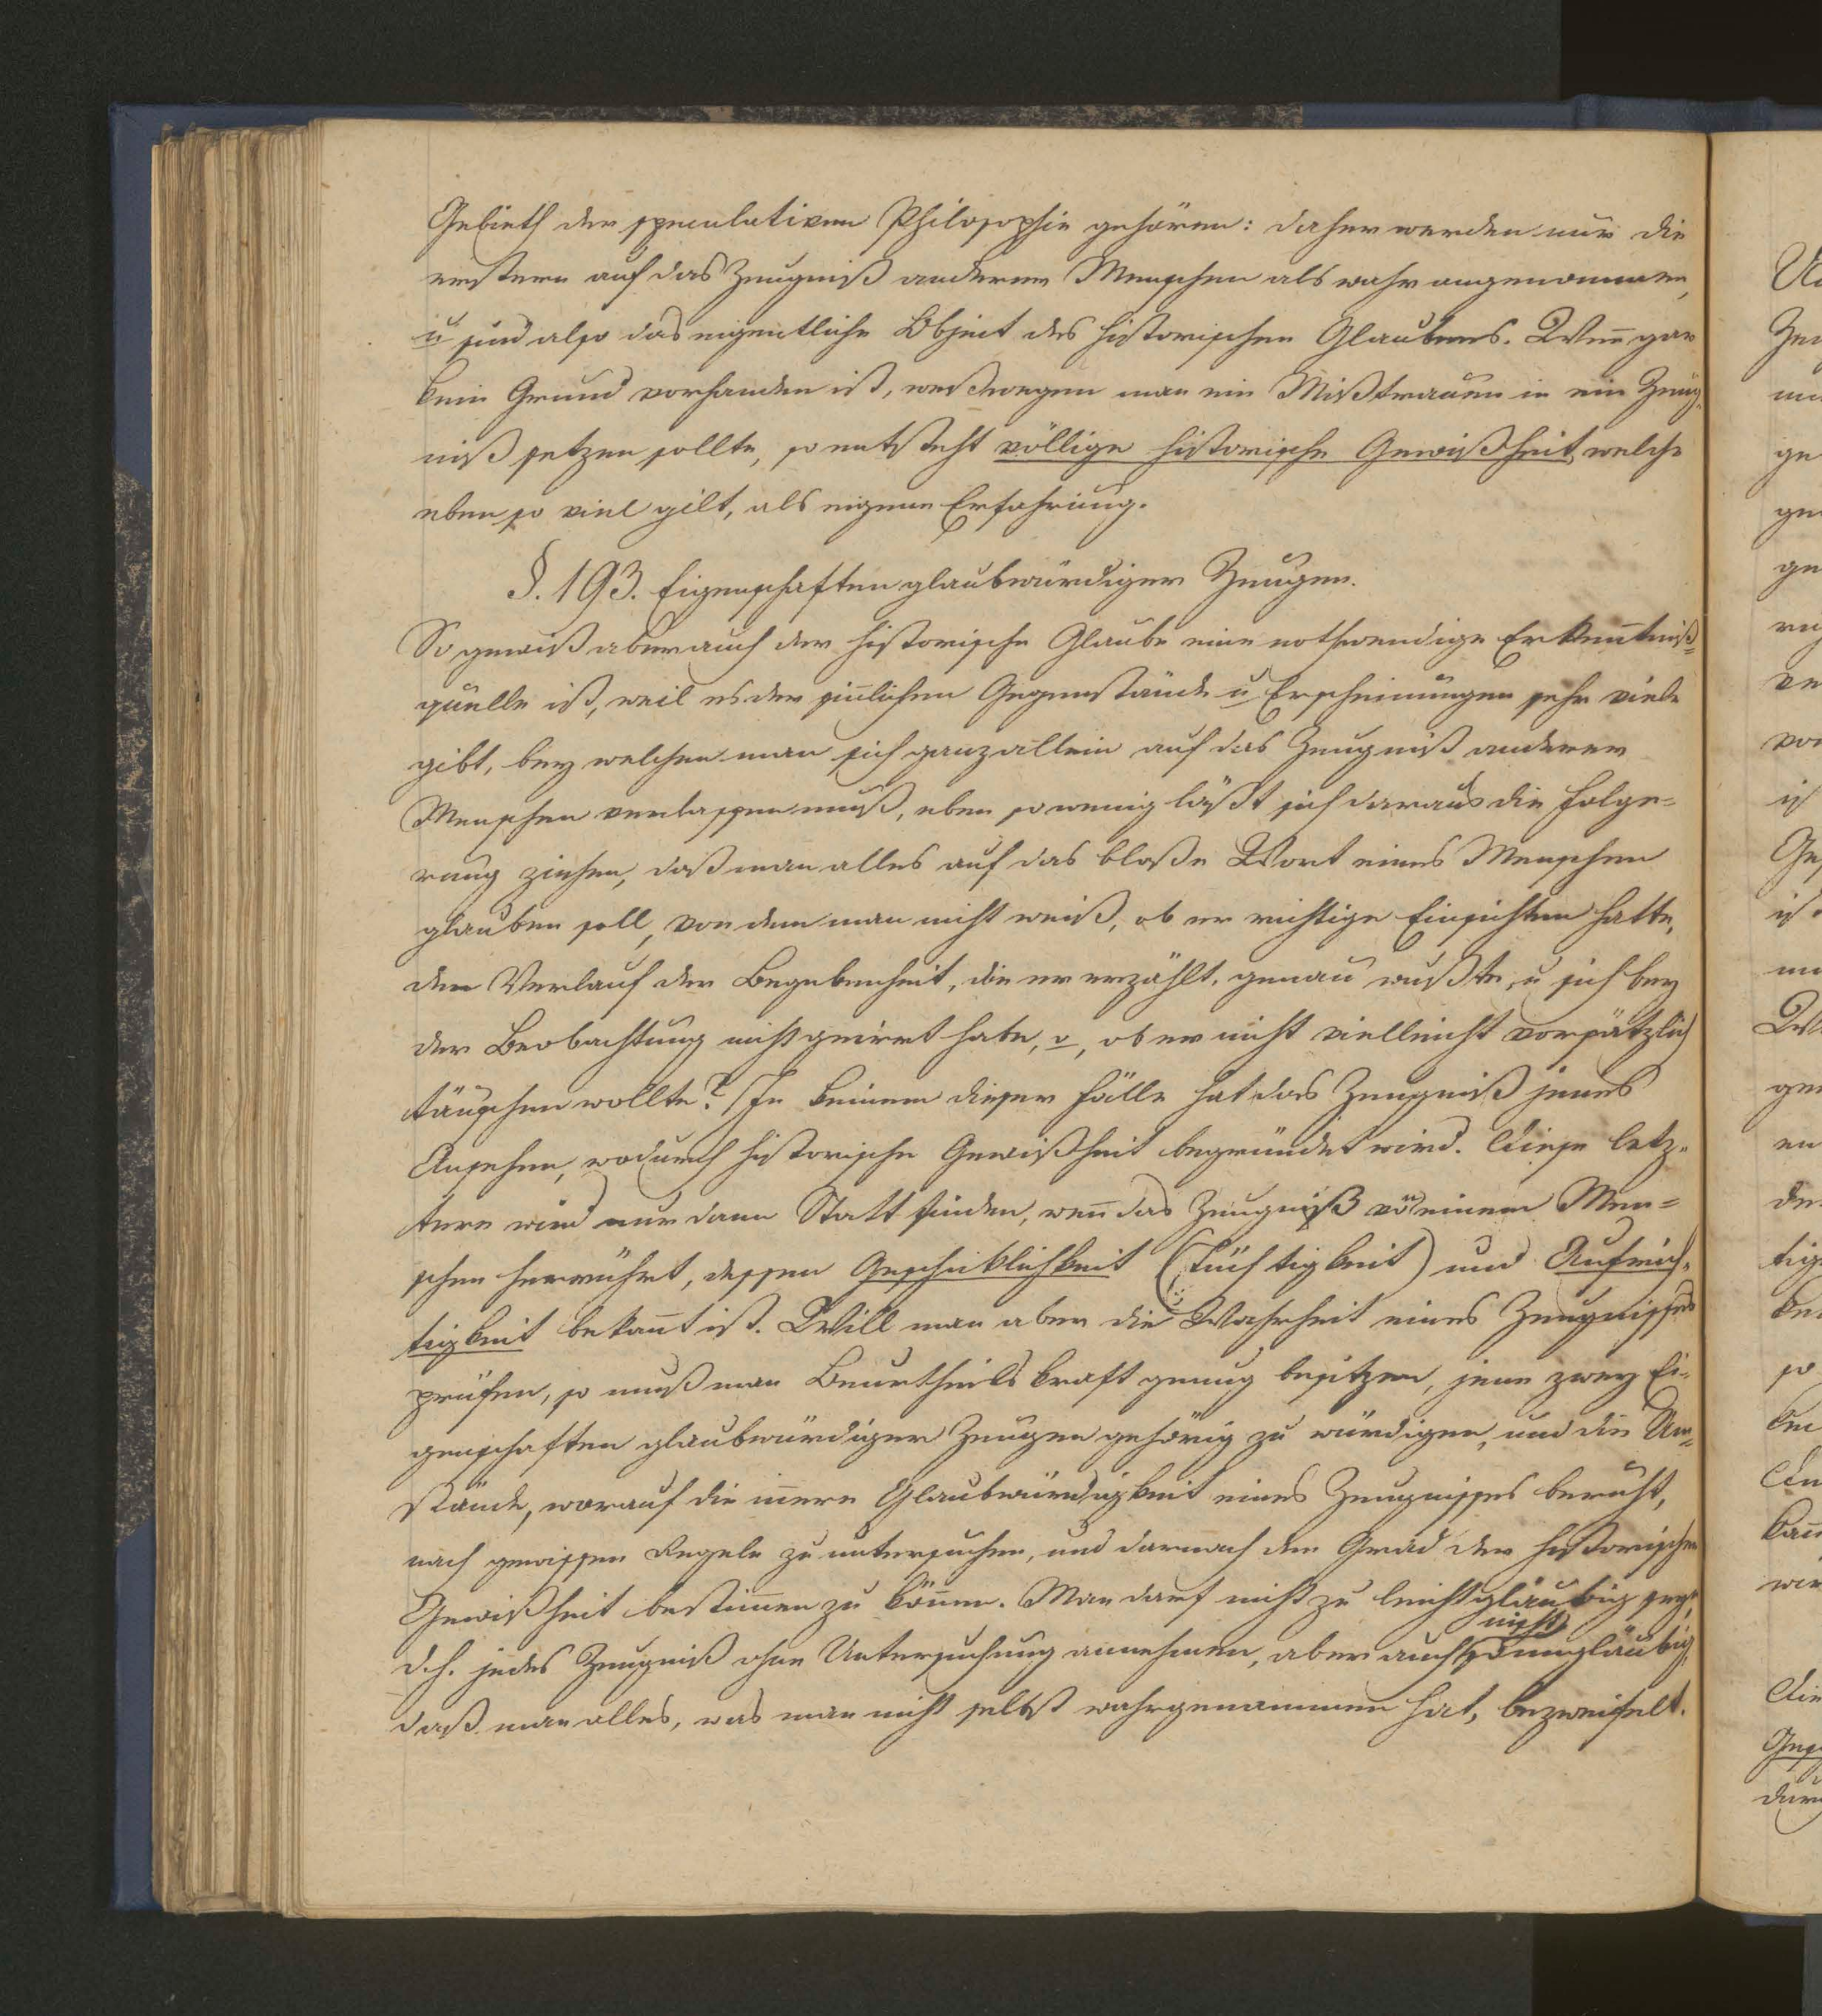 Gebieth der speculativen Philosophie gehören: daher werden nur die
erstern auf das Zeugniß anderer Menschen als wahr angenommen,
u sind also das eigentliche Object des historischen Glaubens. Weñ gar
kein Grund vorhanden ist, weßwegen man ein Mißtrauen in ein Zeug-
niß setzen sollte, so entsteht völlige historische Gewißheit, welche
eben so viel gilt, als eigene Erfahrung.
§. 193. Eigenschaften glaubwürdiger Zeugen.
So gewiß aber auch der historische Glaube eine nothwendige Erkeñtniß=
quelle ist, weil es der siñlichen Gegenstände u Erscheinungen sehr viele
gibt, bey welchen man sich ganz allein auf das Zeugniß anderer
Menschen verlassen muß, eben so wenig läßt sich daraus die Folge=
rung ziehen, daß man alles auf das bloße Wort eines Menschen
glauben soll, von dem man nicht weiß, ob er richtige Einsichten hatte,
den Verlauf der Begebenheit, die er erzählt, genau wußte, u sich bey
der Beobachtung nicht geirrt habe, o, ob er nicht vielleicht vorsätzlich
täuschen wollte? In keinem dieser Fälle hat das Zeugniß jenes
Ansehen, wodurch historische Gewißheit begründet wird. Diese letz=
tere wird nur dann Statt finden, weñ das Zeugniß vo einem Men=
schen herrührt, dessen Geschicklichkeit (Tüchtigkeit) und Aufrich=
tigkeit bekañt ist. Will man aber die Wahrheit eines Zeugnisses
prüfen, so muß man Beurtheilskraft genug besitzen, jene zwey Ei=
genschaften glaubwürdiger Zeugen gehörig zu würdigen, und die Um=
stände, worauf die iñere Glaubwürdigkeit eines Zeugnisses beruht,
nach gewissen Regeln zu untersuchen, und darnach den Grad der historischen
Gewißheit bestim̃en zu köñen. Man darf nicht zu leichtgläubig seyn,
nicht
d.h. jedes Zeugniß ohne Untersuchung annehmen, aber auch so ungläubig,
daß man alles, was man nicht selbst wahrgenommen hat, bezweifelt.